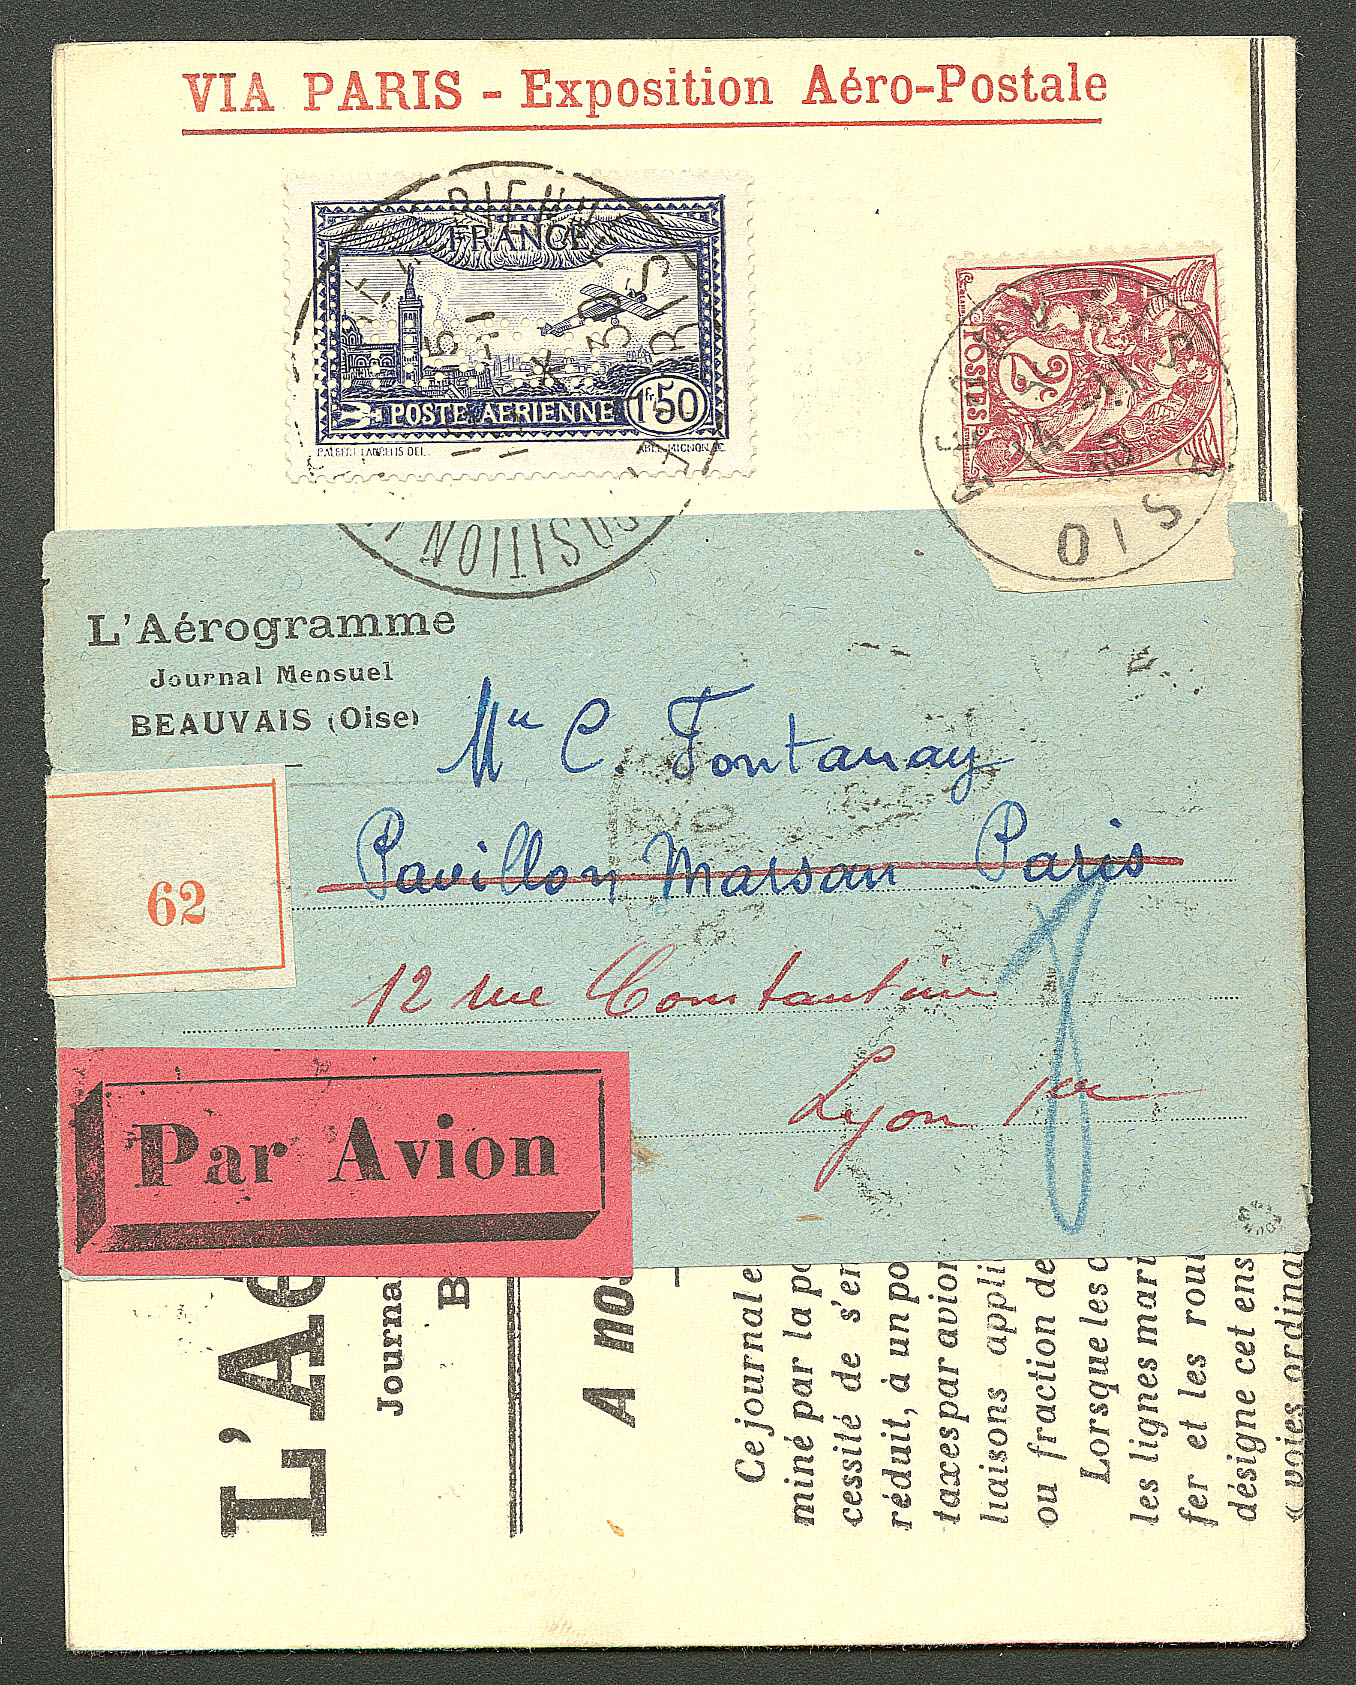 VIA PARIS - Exposition Aéro-Postale
FRANCE
POSTE AERIENNE 1fr50
2
POSTES
OISE
L'Aérogramme
Journal Mensuel
BEAUVAIS (Oise)
C. Fontanay
Pavillon Marsan Paris
62
12 rue Constantine
Lyon 1er
Par Avion
L'Aé
Journa
B
A nos
Ce journal e
miné par la po
cessité de s'en
réduit, à un po
taxes par avion
liaisons appli
ou fraction de
Lorsque les
les lignes mari
fer et les rou
désigne cet ens
« voies ordina